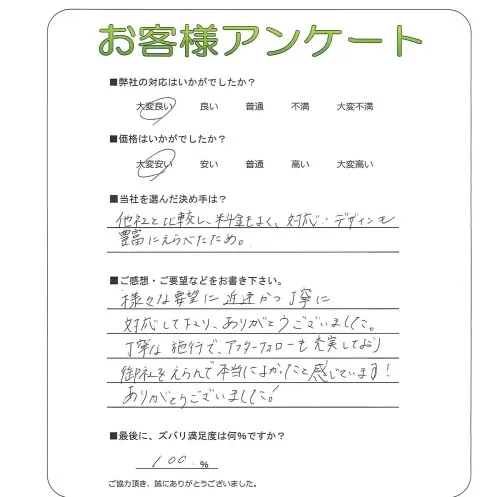 お客様アンケート
■弊社の対応はいかがでしたか？
大変良い 良い 普通 不満 大変不満
■価格はいかがでしたか？
大変安い 安い 普通 高い 大変高い
■当社を選んだ決め手は？
他社と比較し、料金もよく、対応・デザインも
豊富にえらべたため。
■ご感想・ご要望などをお書き下さい。
様々な要望に迅速かつ丁寧に
対応して下さり、ありがとうございました。
丁寧な施行で、アフターフォローも充実しており
御社をえらんで本当によかったと感じています！
ありがとうございました！
■最後に、ズバリ満足度は何%ですか？
100 %
ご協力頂き、誠にありがとうございました。